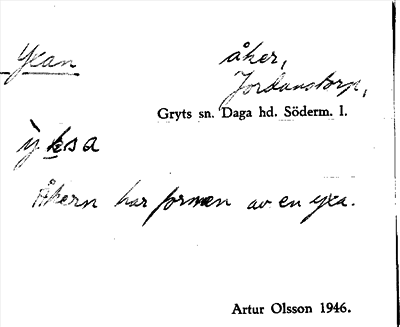 Yxan
åker,
Jordanstorp,
Gryts sn. Daga hd. Söderm. l.
ỳksa
Åkern har formen av en yxa.
Artur Olsson 1946.